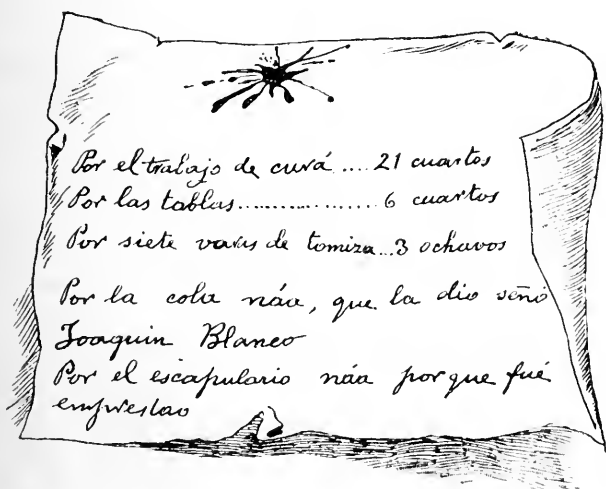 Por el trabajo de curá .... 21 cuartos
Por las tablas.................. 6 cuartos
Por siete varas de tomiza...3 ochavos
Por la cola náa, que la dio señó
Joaquin Blanco
Por el escapulario náa porque fué
emprestao